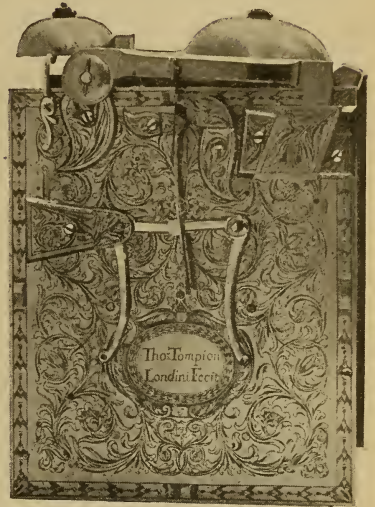 Tho: Tompion
Londini Fecit